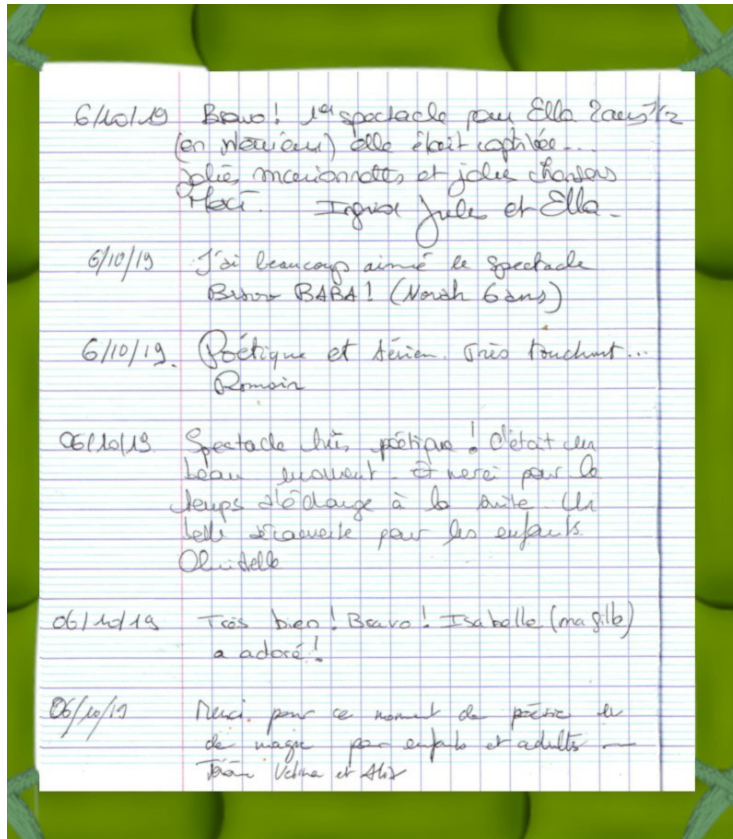 6/10/19 Bravo! 1er spectacle pour Ella 2 ans 1/2
(en intérieur) elle était captivée...
jolies marionnettes et jolies chansons
Merci. Ingrid Jules et Ella.
6/10/19 J'ai beaucoup aimé le spectacle
Bravo BABA! (Norah 6 ans)
6/10/19. Poétique et Aérien. Très touchant...
Romain
06/10/19 Spectacle très poétique! C'était un
beau moment. Et merci pour le
temps d'échange à la suite. Un
belle découverte pour les enfants.
06/10/19 Très bien! Bravo! Isabelle (ma fille)
a adoré!
06/10/19 Merci pour ce moment de poésie et
de magie pour enfants et adultes —
et Alix